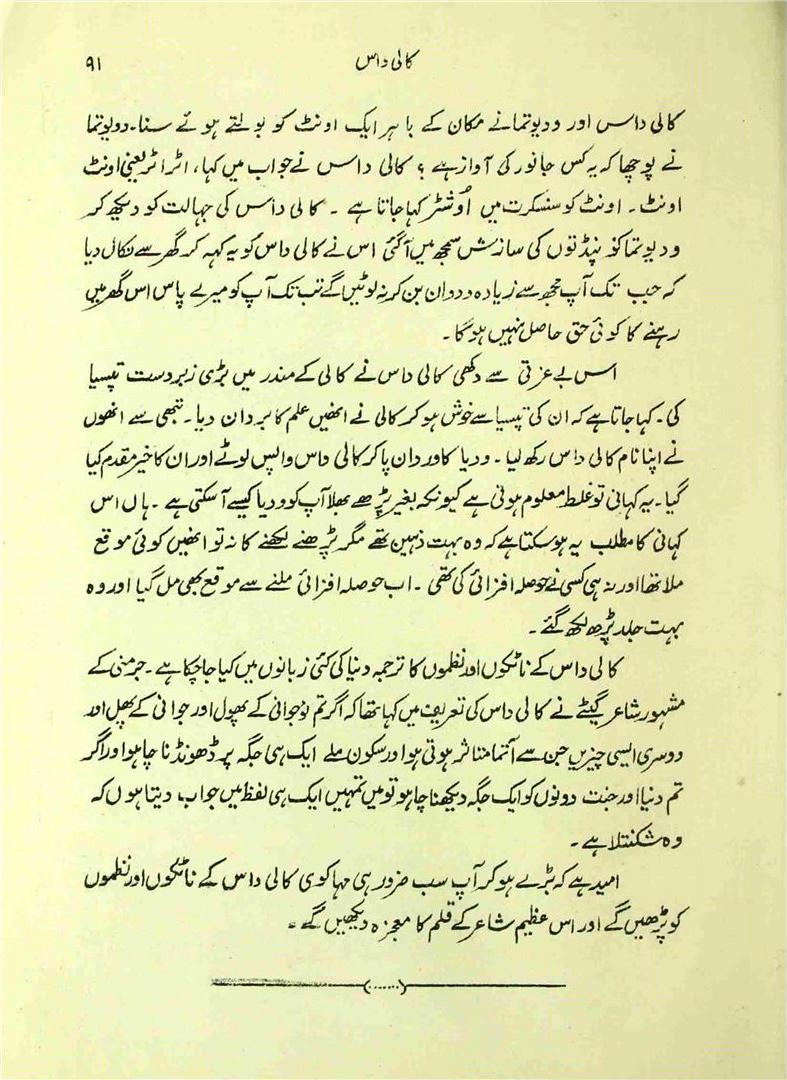 کالی داس ۹۱
کالی داس اور ودیوتمانے مکان کے باہر ایک اونٹ کو بولتے ہوئے سنا۔ ددیوتما
نے پوچھا کہ یہ کس جانور کی آواز ہے ؟ کالی داس نے جواب میں کہا، اٹر اٹر یعنی اونٹ
اونٹ۔ اونٹ کو سنسکرت میں اُوشٹر کہا جاتا ہے ۔ کالی داس کی جہالت کو دیکھ کر
ودیوتما کو پنڈتوں کی سازش سمجھ میں آگئی اس نے کالی داس کو یہ کہہ کر گھر سے نکال دیا
کہ جب تک آپ مجھ سے زیادہ ددوان بن کر نہ لوٹیں گے تب تک آپ کو میرے پاس اس گھر میں
رہنے کا کوئی حق حاصل نہیں ہوگا۔
اس بے عزتی سے دکھی کالی داس نے کالی کے مندر میں بڑی زبردست تپسیا
کی۔ کہا جاتا ہے کہ ان کی تپسیا سے خوش ہو کر کالی نے انھیں علم کا بردان دیا۔ تبھی سے انھوں
نے اپنا نام کالی داس رکھ لیا ۔ ودیا کا وردان پا کر کالی داس واپس لوٹے اور ان کا خیر مقدم کیا
گیا۔ یہ کہانی تو غلط معلوم ہوتی ہے کیونکہ بغیر پڑھے بھلا آپ کو ودیا کیسے آسکتی ہے ۔ ہاں اس
کہانی کا مطلب یہ ہو سکتا ہے کہ وہ بہت ذہین تھے مگر پڑھنے لکھنے کا نہ تو انھیں کوئی موقع
ملا تھا اور نہ ہی کسی نے حوصلہ افزائی کی تھی ۔ اب حوصلہ افزائی ملنے سے موقع بھی مل گیا اور وہ
بہت جلد پڑھ لکھ گئے ۔
کالی داس کے ناٹکوں اور نظموں کا ترجمہ دنیا کی کئی زبانوں میں کیا جا چکا ہے ۔ جرمنی کے
مشہور شاعر گیٹے نے کالی داس کی تعریف میں کہا تھا کہ اگر تم نوجوانی کے پھول اور جوانی کے پھل اور
دوسری ایسی چیزیں جن سے آتما متاثر ہوتی ہو اور سکون ملے ایک ہی جگہ پر ڈھونڈنا چاہو اور اگر
تم دنیا اور جنت دونوں کو ایک جگہ دیکھنا چاہو تو میں تمہیں ایک ہی لفظ میں جواب دیتا ہوں کہ
وہ شکنتلا ہے ۔
امید ہے کہ بڑے ہو کر آپ سب ضرور ہی مہاکوی کالی داس کے ناٹکوں اور نظموں
کو پڑھیں گے اور اس عظیم شاعر کے قلم کا معجزہ دیکھیں گے ۔